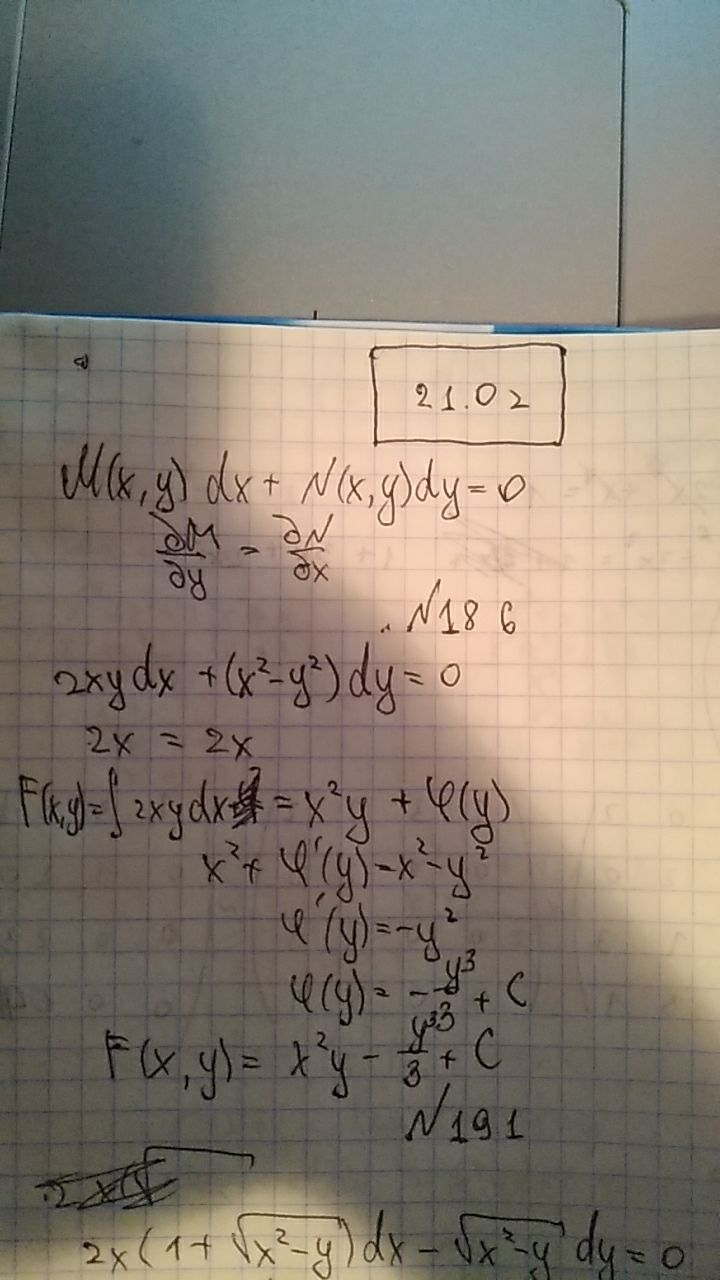 21.02
M(x,y) dx + N(x,y)dy = 0
∂M/∂y = ∂N/∂x
N186
2xydx + (x²-y²)dy = 0
2x = 2x
F(x,y) = ∫2xydx = x²y + φ(y)
x² + φ'(y) = x² - y²
φ'(y) = -y²
φ(y) = -y³/3 + C
F(x,y) = x²y - y³/3 + C
N191
2x(1+√(x²-y))dx - √(x²-y) dy = 0